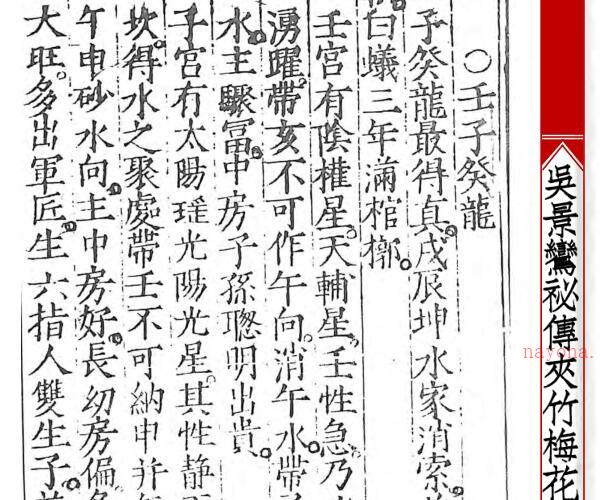 吳景鸞祕傳夾竹梅花
○壬子癸龍
子癸龍最得真。戌辰坤水家消索
白蟻三年滿棺槨。
壬宮有陰權星。天輔星。壬性急。乃
湧躍。帶亥不可作午向。消午水。帶子
水。主驟富。中房子孫聰明出貴。
子宮有太陽瑤光陽光星。其性靜
坎。得水之聚處。帶壬不可納申并
午申砂水向。主中房好。長幼房偏
大旺。多出軍匠。生六指人雙生子
nayona.